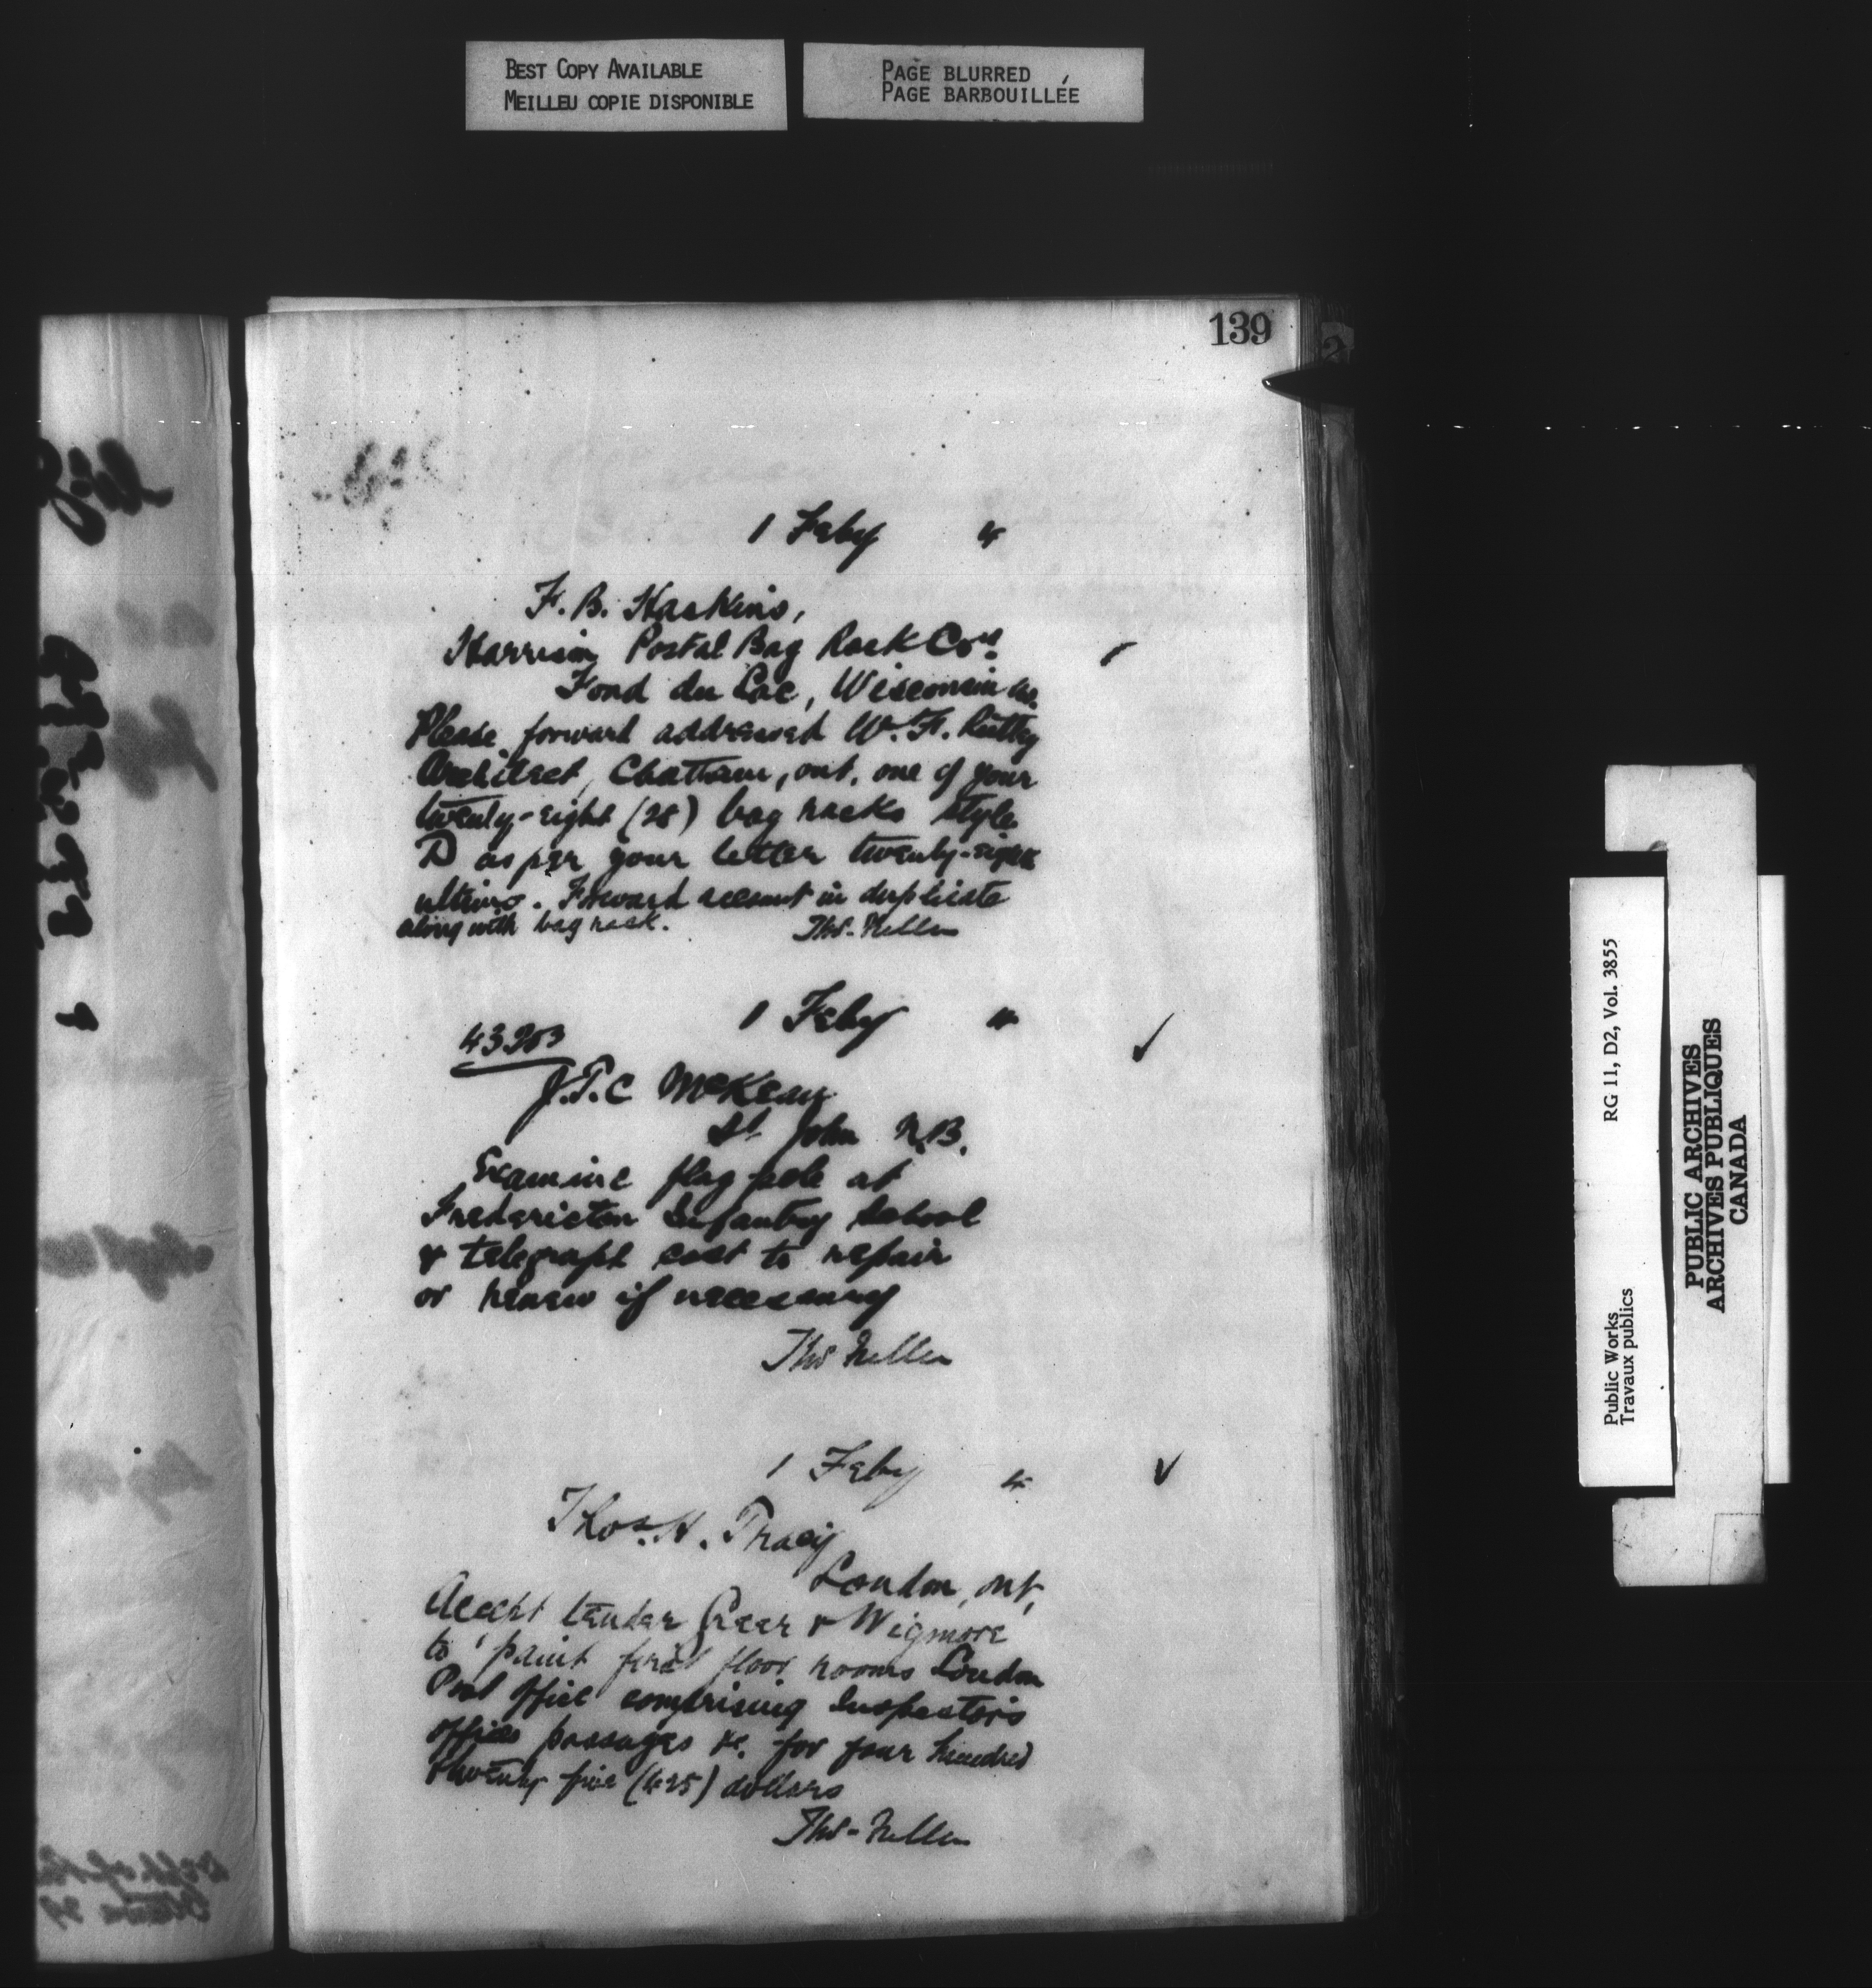 BEST COPY AVAILABLE
MEILLEU COPIE DISPONIBLE
PAGE BLURRED
PAGE BARBOUILLÉE
139
1 Feby 4
F. B. Haskins,
Harrison Postal Bag Rack Coy.
Fond du Lac, Wisconsin
Please forward addressed W. F. Ruttley
Architect, Chatham, ont. one of your
twenty-eight (28) bag racks style
D as per your letter twenty-eight
ultimo. Forward account in duplicate
along with bag rack. Thos. Fuller
1 Feby 4
43903
J.T.C McKean
St John N.B.
Examine flag pole at
Fredericton Infantry School
& telegraph cost to repair
or renew if necessary
Thos Fuller
1 Feby 4
Thos. H. Tracy
London, ont,
Accept tender Greer & Wigmore
to paint first floor rooms London
Post Office comprising Inspectors
offices passages &c. for four hundred
& twenty five (425) dollars
Thos. Fuller
RG 11, D2, Vol. 3855
Public Works
Travaux publics
PUBLIC ARCHIVES
ARCHIVES PUBLIQUES
CANADA